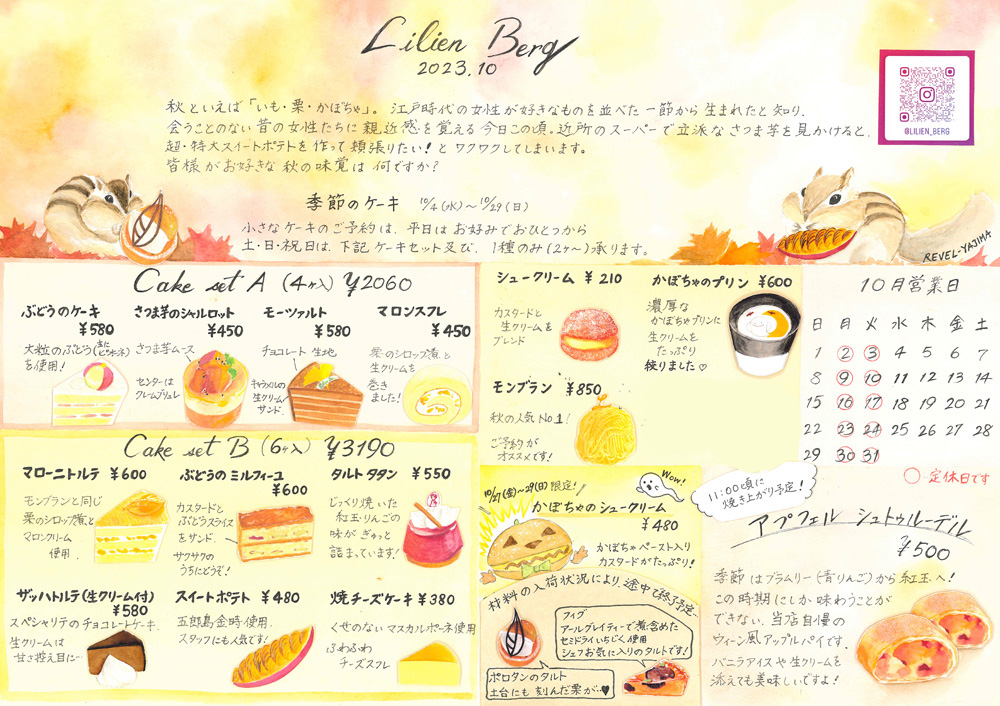 Lilien Berg
2023.10
@LILIEN_BERG
秋といえば「いも・栗・かぼちゃ」。江戸時代の女性が好きなものを並べた一節から生まれたと知り、
会うことのない昔の女性たちに親近感を覚える今日この頃。近所のスーパーで立派なさつま芋を見かけると、
超・特大スイートポテトを作って頬張りたい！とワクワクしてしまいます。
皆様がお好きな秋の味覚は何ですか？
季節のケーキ 10/4(水)～10/29(日)
小さなケーキのご予約は、平日はお好みでおひとつから
土・日・祝日は、下記ケーキセット及び、1種のみ(2ヶ～)承ります。
REVEL-YAJIMA
Cake set A (4ヶ入) ¥2060
ぶどうのケーキ
¥580
大粒のぶどう
を使用！
さつま芋のシャルロット
¥450
さつま芋ムース
センターは
クレームブリュレ
モーツァルト
¥580
チョコレート生地
キャラメルの
生クリーム
サンド
マロンスフレ
¥450
栗のシロップ煮と
生クリームを
巻き
ました！
Cake set B (6ヶ入) ¥3190
マローニトルテ ¥600
モンブランと同じ
栗のシロップ煮と
マロンクリーム
使用
ぶどうのミルフィーユ
¥600
カスタードと
ぶどうスライス
をサンド。
サクサクの
うちにどうぞ！
タルトタタン ¥550
じっくり焼いた
紅玉りんごの
味がぎゅっと
詰まっています！
ザッハトルテ(生クリーム付)
¥580
スペシャリテのチョコレートケーキ。
生クリームは
甘さ控え目に…
スイートポテト ¥480
五郎島金時使用。
スタッフにも人気です！
焼チーズケーキ ¥380
くせのないマスカルポーネ使用
ふわふわ
チーズスフレ
シュークリーム ¥210
カスタードと
生クリームを
ブレンド
かぼちゃのプリン ¥600
濃厚な
かぼちゃプリンに
生クリームを
たっぷり
絞りました♡
モンブラン ¥850
秋の人気No.1！
ご予約が
オススメです！
10/27(金)～29(日)限定！
Wow!
かぼちゃのシュークリーム
¥480
かぼちゃペースト入り
カスタードがたっぷり！
材料の入荷状況により、途中で終了予定。
フィグ
アールグレイティーで煮含めた
セミドライいちじく使用
シェフお気に入りのタルトです！
ポロタンのタルト
土台にも刻んだ栗が…♥
10月営業日
日 月 火 水 木 金 土
1 2 3 4 5 6 7
8 9 10 11 12 13 14
15 16 17 18 19 20 21
22 23 24 25 26 27 28
29 30 31
○・定休日です
11:00頃に
焼き上がり予定！
アプフェル シュトゥルーデル
¥500
季節はブラムリー(青りんご)から紅玉へ！
この時期にしか味わうことが
できない、当店自慢の
ウィーン風アップルパイです。
バニラアイスや生クリームを
添えても美味しいですよ！